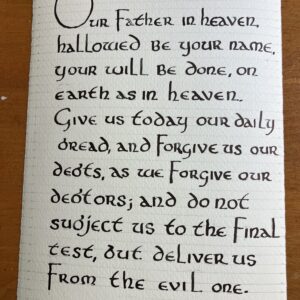 Our Father in heaven,
hallowed be your name,
your will be done, on
earth as in heaven.
Give us today our daily
bread, and forgive us our
debts, as we forgive our
debtors; and do not
subject us to the final
test, but deliver us
from the evil one.